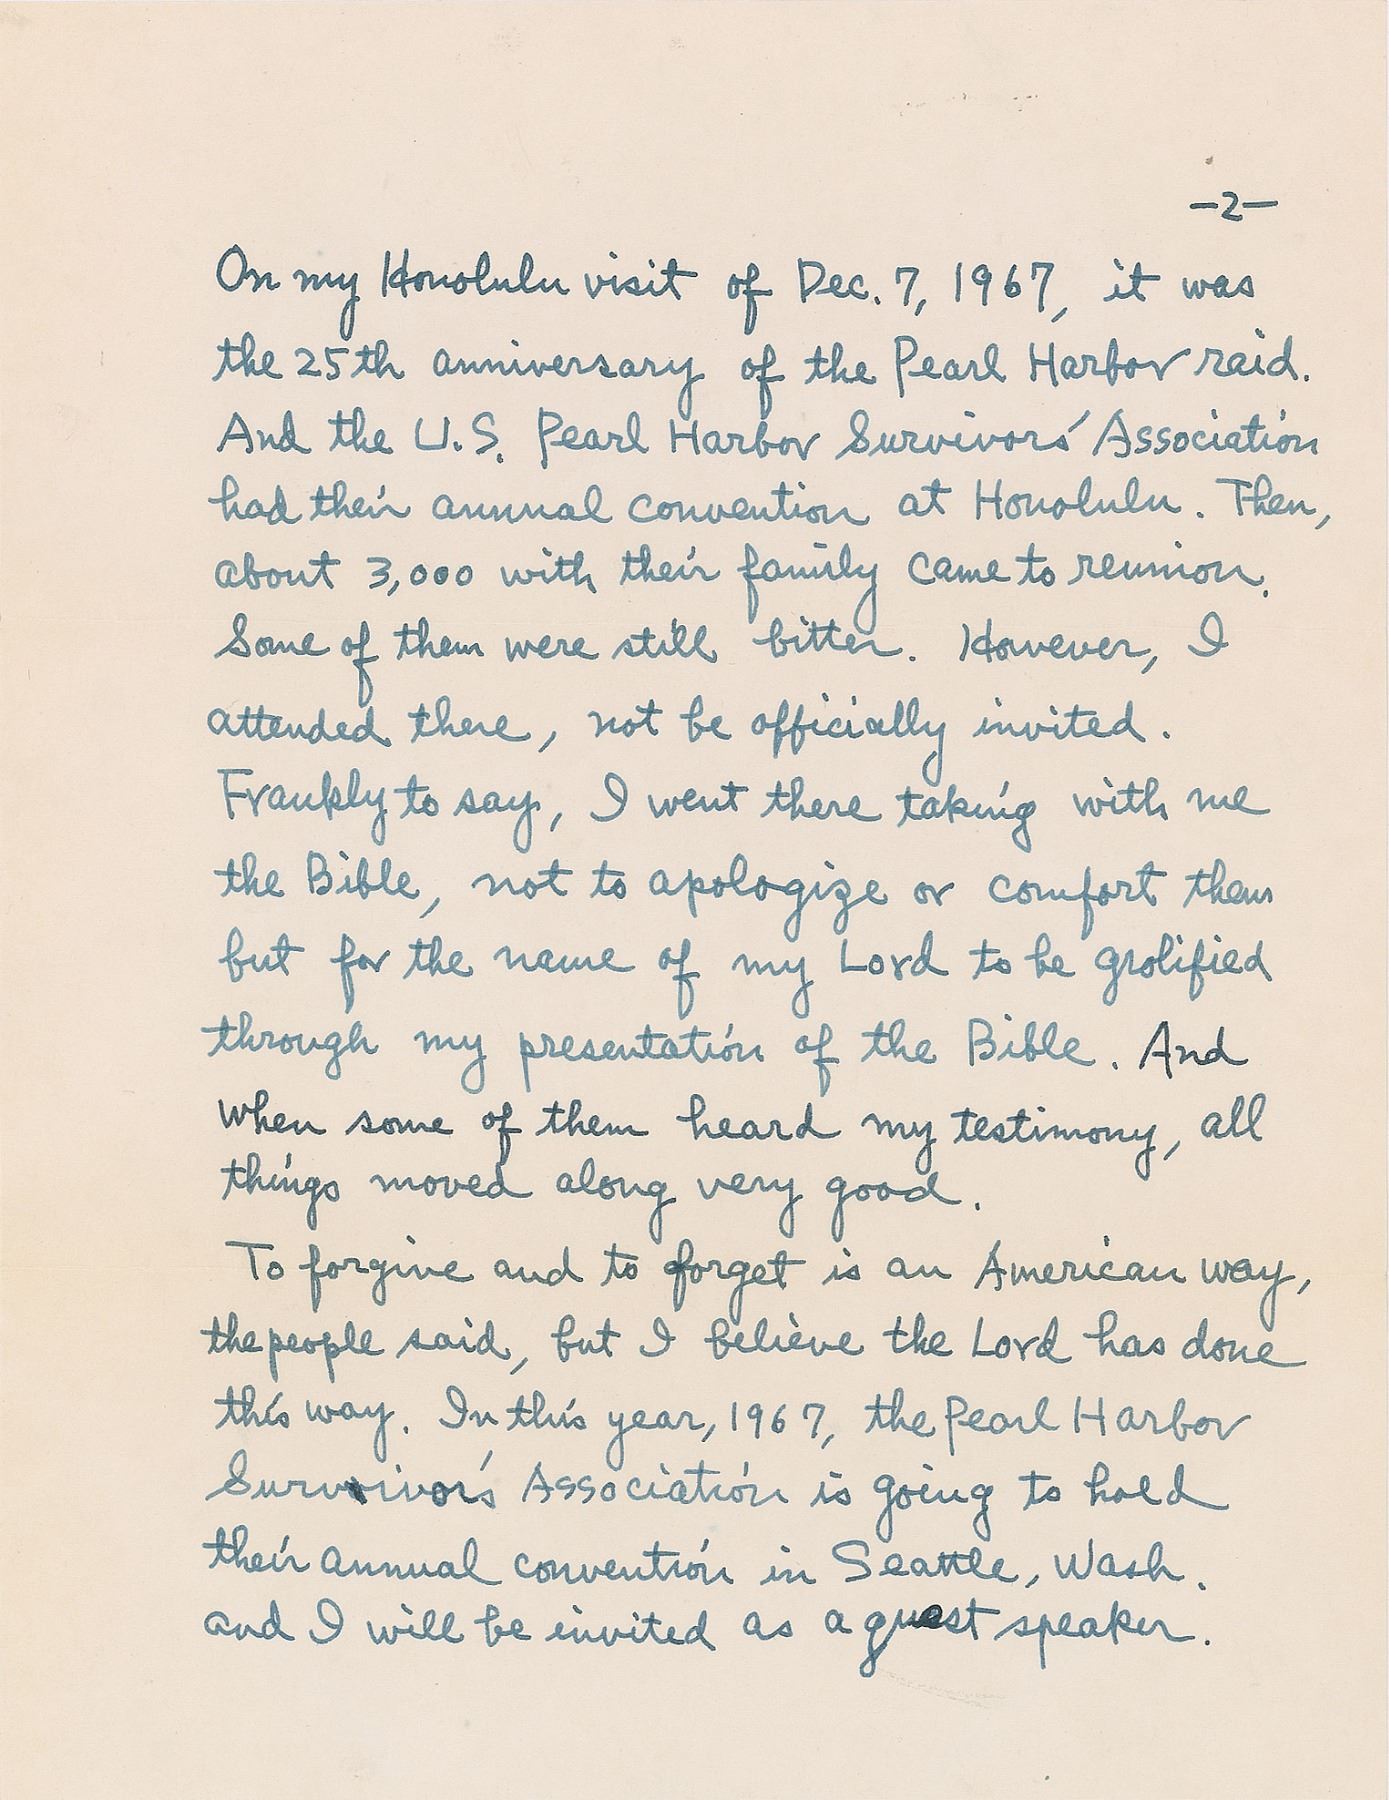 -2-
On my Honolulu visit of Dec. 7, 1967, it was
the 25th anniversary of the Pearl Harbor raid.
And the U.S. Pearl Harbor Survivors' Association
had their annual convention at Honolulu. Then,
about 3,000 with their family came to reunion.
Some of them were still bitter. However, I
attended there, not be officially invited.
Frankly to say, I went there taking with me
the Bible, not to apologize or comfort them
but for the name of my Lord to be grolified
through my presentation of the Bible. And
when some of them heard my testimony, all
things moved along very good.
To forgive and to forget is an American way,
the people said, but I believe the Lord has done
this way. In this year, 1967, the Pearl Harbor
Survivor's Association is going to hold
their annual convention in Seattle, Wash.
and I will be invited as a guest speaker.